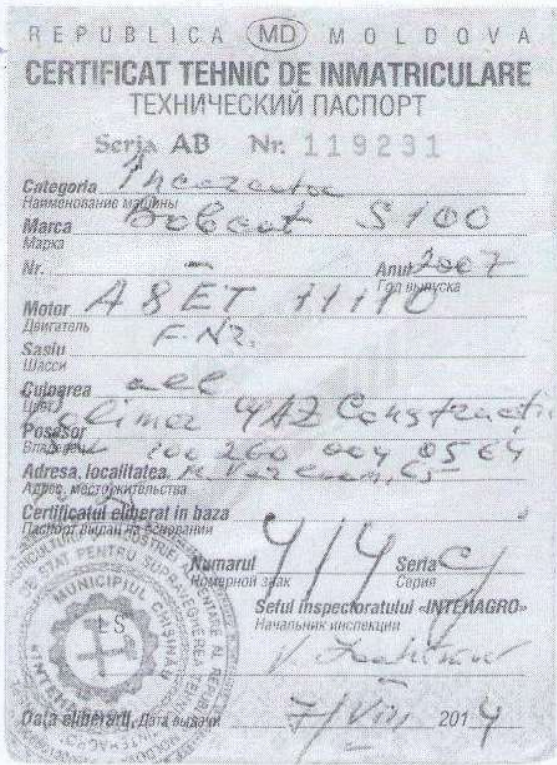 REPUBLICA MD MOLDOVA
CERTIFICAT TEHNIC DE INMATRICULARE
ТЕХНИЧЕСКИЙ ПАСПОРТ
Seria AB Nr. 119231
Categoria
Наименование машины
Marca Bobcat S100
Марка
Nr. – Anul 2007
Год выпуска
Motor A8ET 11110
Двигатель
Sasiu F. NR.
Шасси
Culoarea alb
Цвет
Polimer GAZ Constructii
Posesor
Владелец
Adresa, localitatea
Адрес, местожительства
Certificatul eliberat in baza
Паспорт выдан на основании
Numarul 414 Seria CJ
Номерной знак Серия
Seful inspectoratului «INTEHAGRO»
Начальник инспекции
MUNICIPIUL CHIŞINĂU
LS
Data eliberarii, Дата выдачи 7/VIII 2014